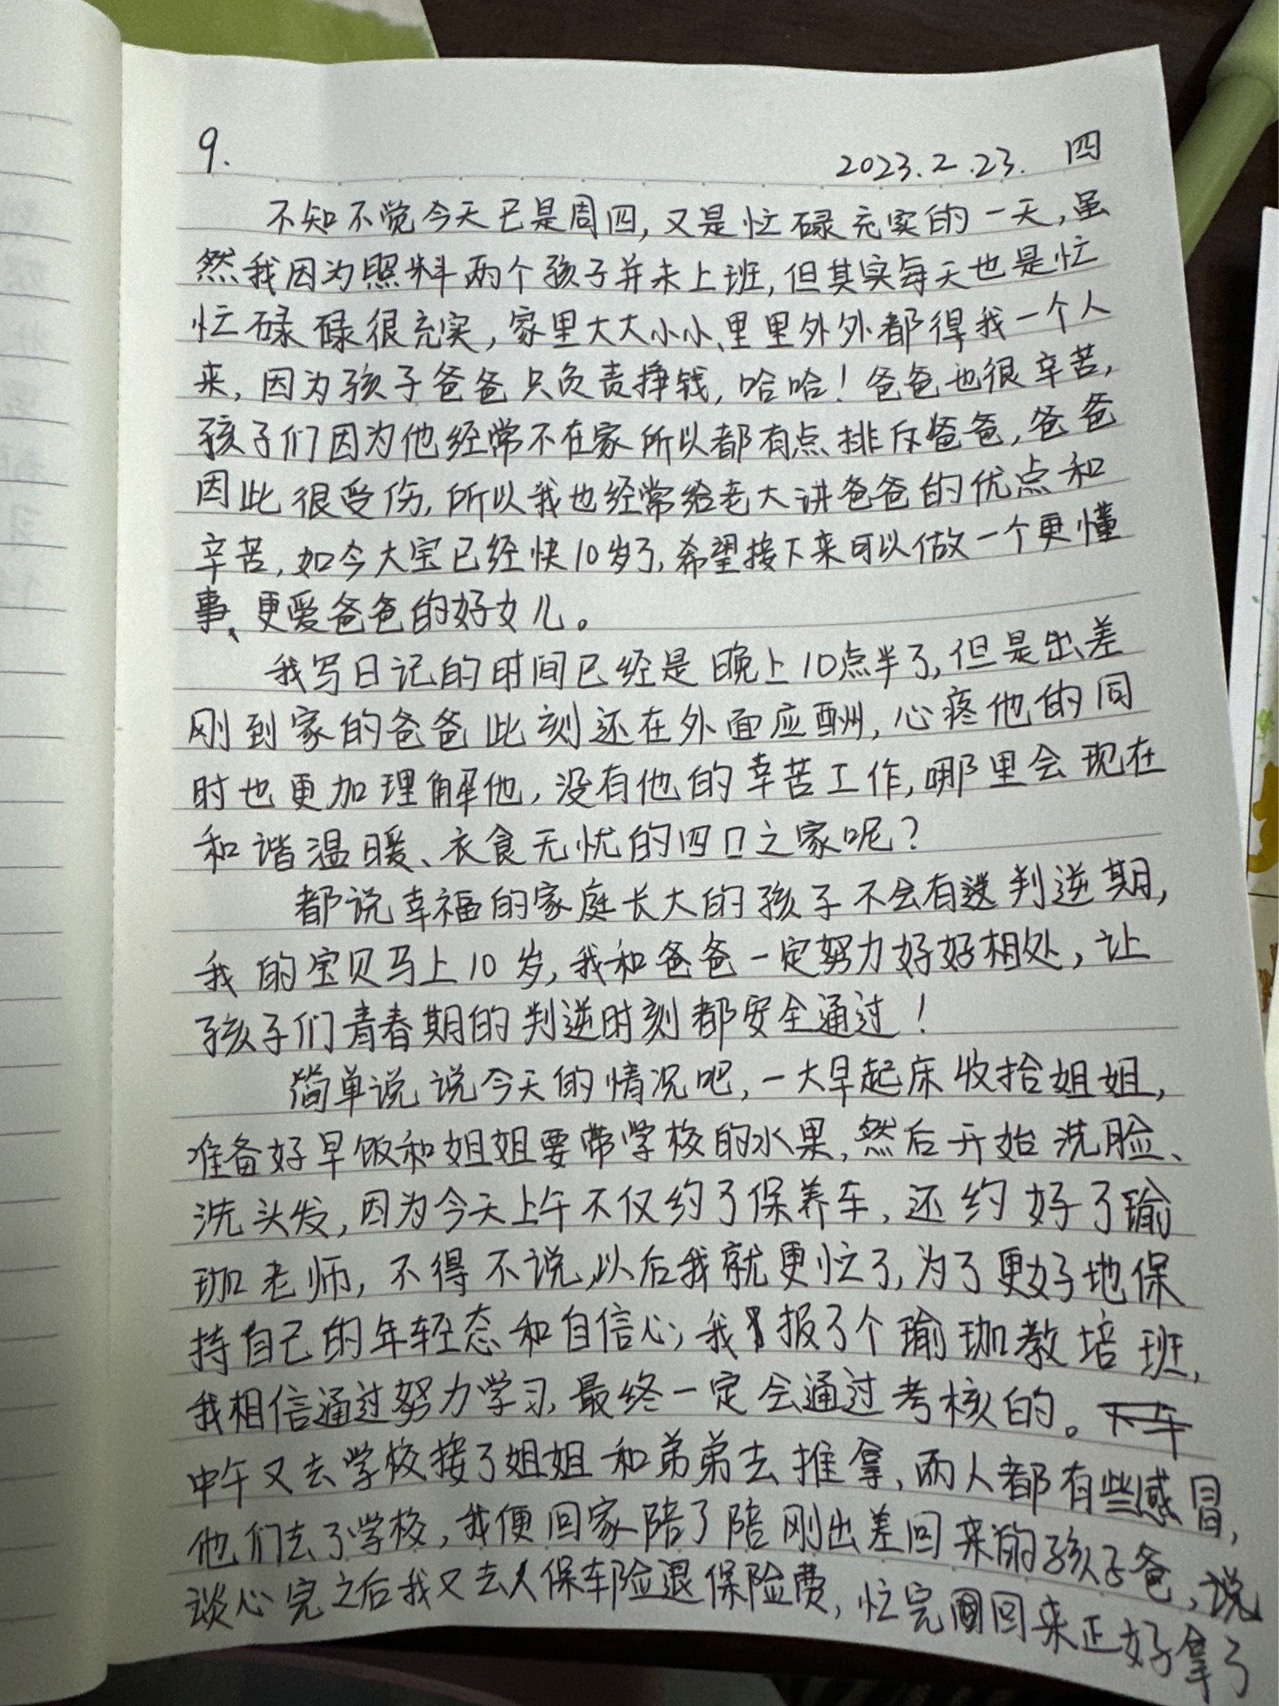 9.
2023.2.23. 四
不知不觉今天已是周四,又是忙碌充实的一天,虽
然我因为照料两个孩子并未上班,但其实每天也是忙
忙碌碌很充实,家里大大小小、里里外外都得我一个人
来,因为孩子爸爸只负责挣钱,哈哈!爸爸也很辛苦,
孩子们因为他经常不在家所以都有点排斥爸爸,爸爸
因此很受伤,所以我也经常给老大讲爸爸的优点和
辛苦,如今大宝已经快10岁了,希望接下来可以做一个更懂
事、更爱爸爸的好女儿。
我写日记的时间已经是晚上10点半了,但是出差
刚到家的爸爸此刻还在外面应酬,心疼他的同
时也更加理解他,没有他的辛苦工作,哪里会现在
和谐温暖、衣食无忧的四口之家呢?
都说幸福的家庭长大的孩子不会有判逆期,
我的宝贝马上10岁,我和爸爸一定努力好好相处,让
孩子们青春期的判逆时刻都安全通过!
简单说说今天的情况吧,一大早起床收拾姐姐,
准备好早饭和姐姐要带学校的水果,然后开始洗脸、
洗头发,因为今天上午不仅约了保养车,还约好了瑜
珈老师,不得不说,以后我就更忙了,为了更好地保
持自己的年轻态和自信心,我报了个瑜珈教培班,
我相信通过努力学习,最终一定会通过考核的。下午
中午又去学校接了姐姐和弟弟去推拿,两人都有些感冒,
他们去了学校,我便回家陪了陪刚出差回来的孩子爸,说
谈心完之后我又去人保车险退保险费,忙完回来正好拿了